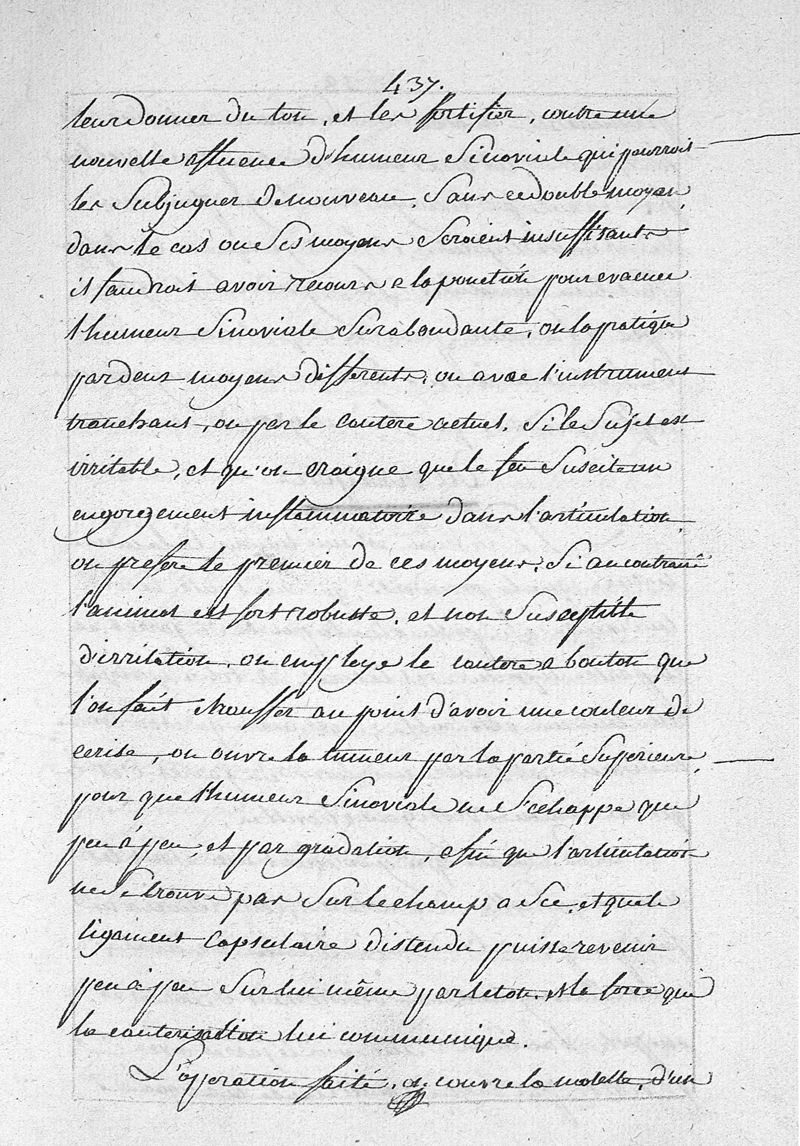 437.
leur donner du ton, et les fortifier, contre une
nouvelle affluence d'humeur Sinoviale qui pourroit
les Subjuguer de nouveau. Sans ce double moyen,
dans le cas ou Ses moyens Seroient insuffisants
il faudroit avoir recours a la ponction pour evacuer
l'humeur Sinoviale Surabondante, on la pratique
par deux moyens differents, ou avec l'instrument
tranchant, ou par le cautere actuel. Si le Sujet est
irritable, et qu'on craigne que le feu Suscite un
engorgement inflammatoire dans l'articulation
on prefere le premier de ces moyens. Si au contraire
l'animal est fort robuste, et non Susceptible
d'irritation, on employe le cautere a bouton que
l'on fait chauffer au point d'avoir une couleur de
cerise, on ouvre la tumeur par la partie Superieure,
pour que l'humeur Sinoviale ne S'echappe que
peu à peu et par gradation, afin que l'articulation
ne Se trouve pas Sur le champ a Sec, et que le
ligament capsulaire distendu puisse revenir
peu à peu Sur lui même par le ton, et la force que
la cauterisation lui communique.
L'operation faite, on couvre la molette, d'un